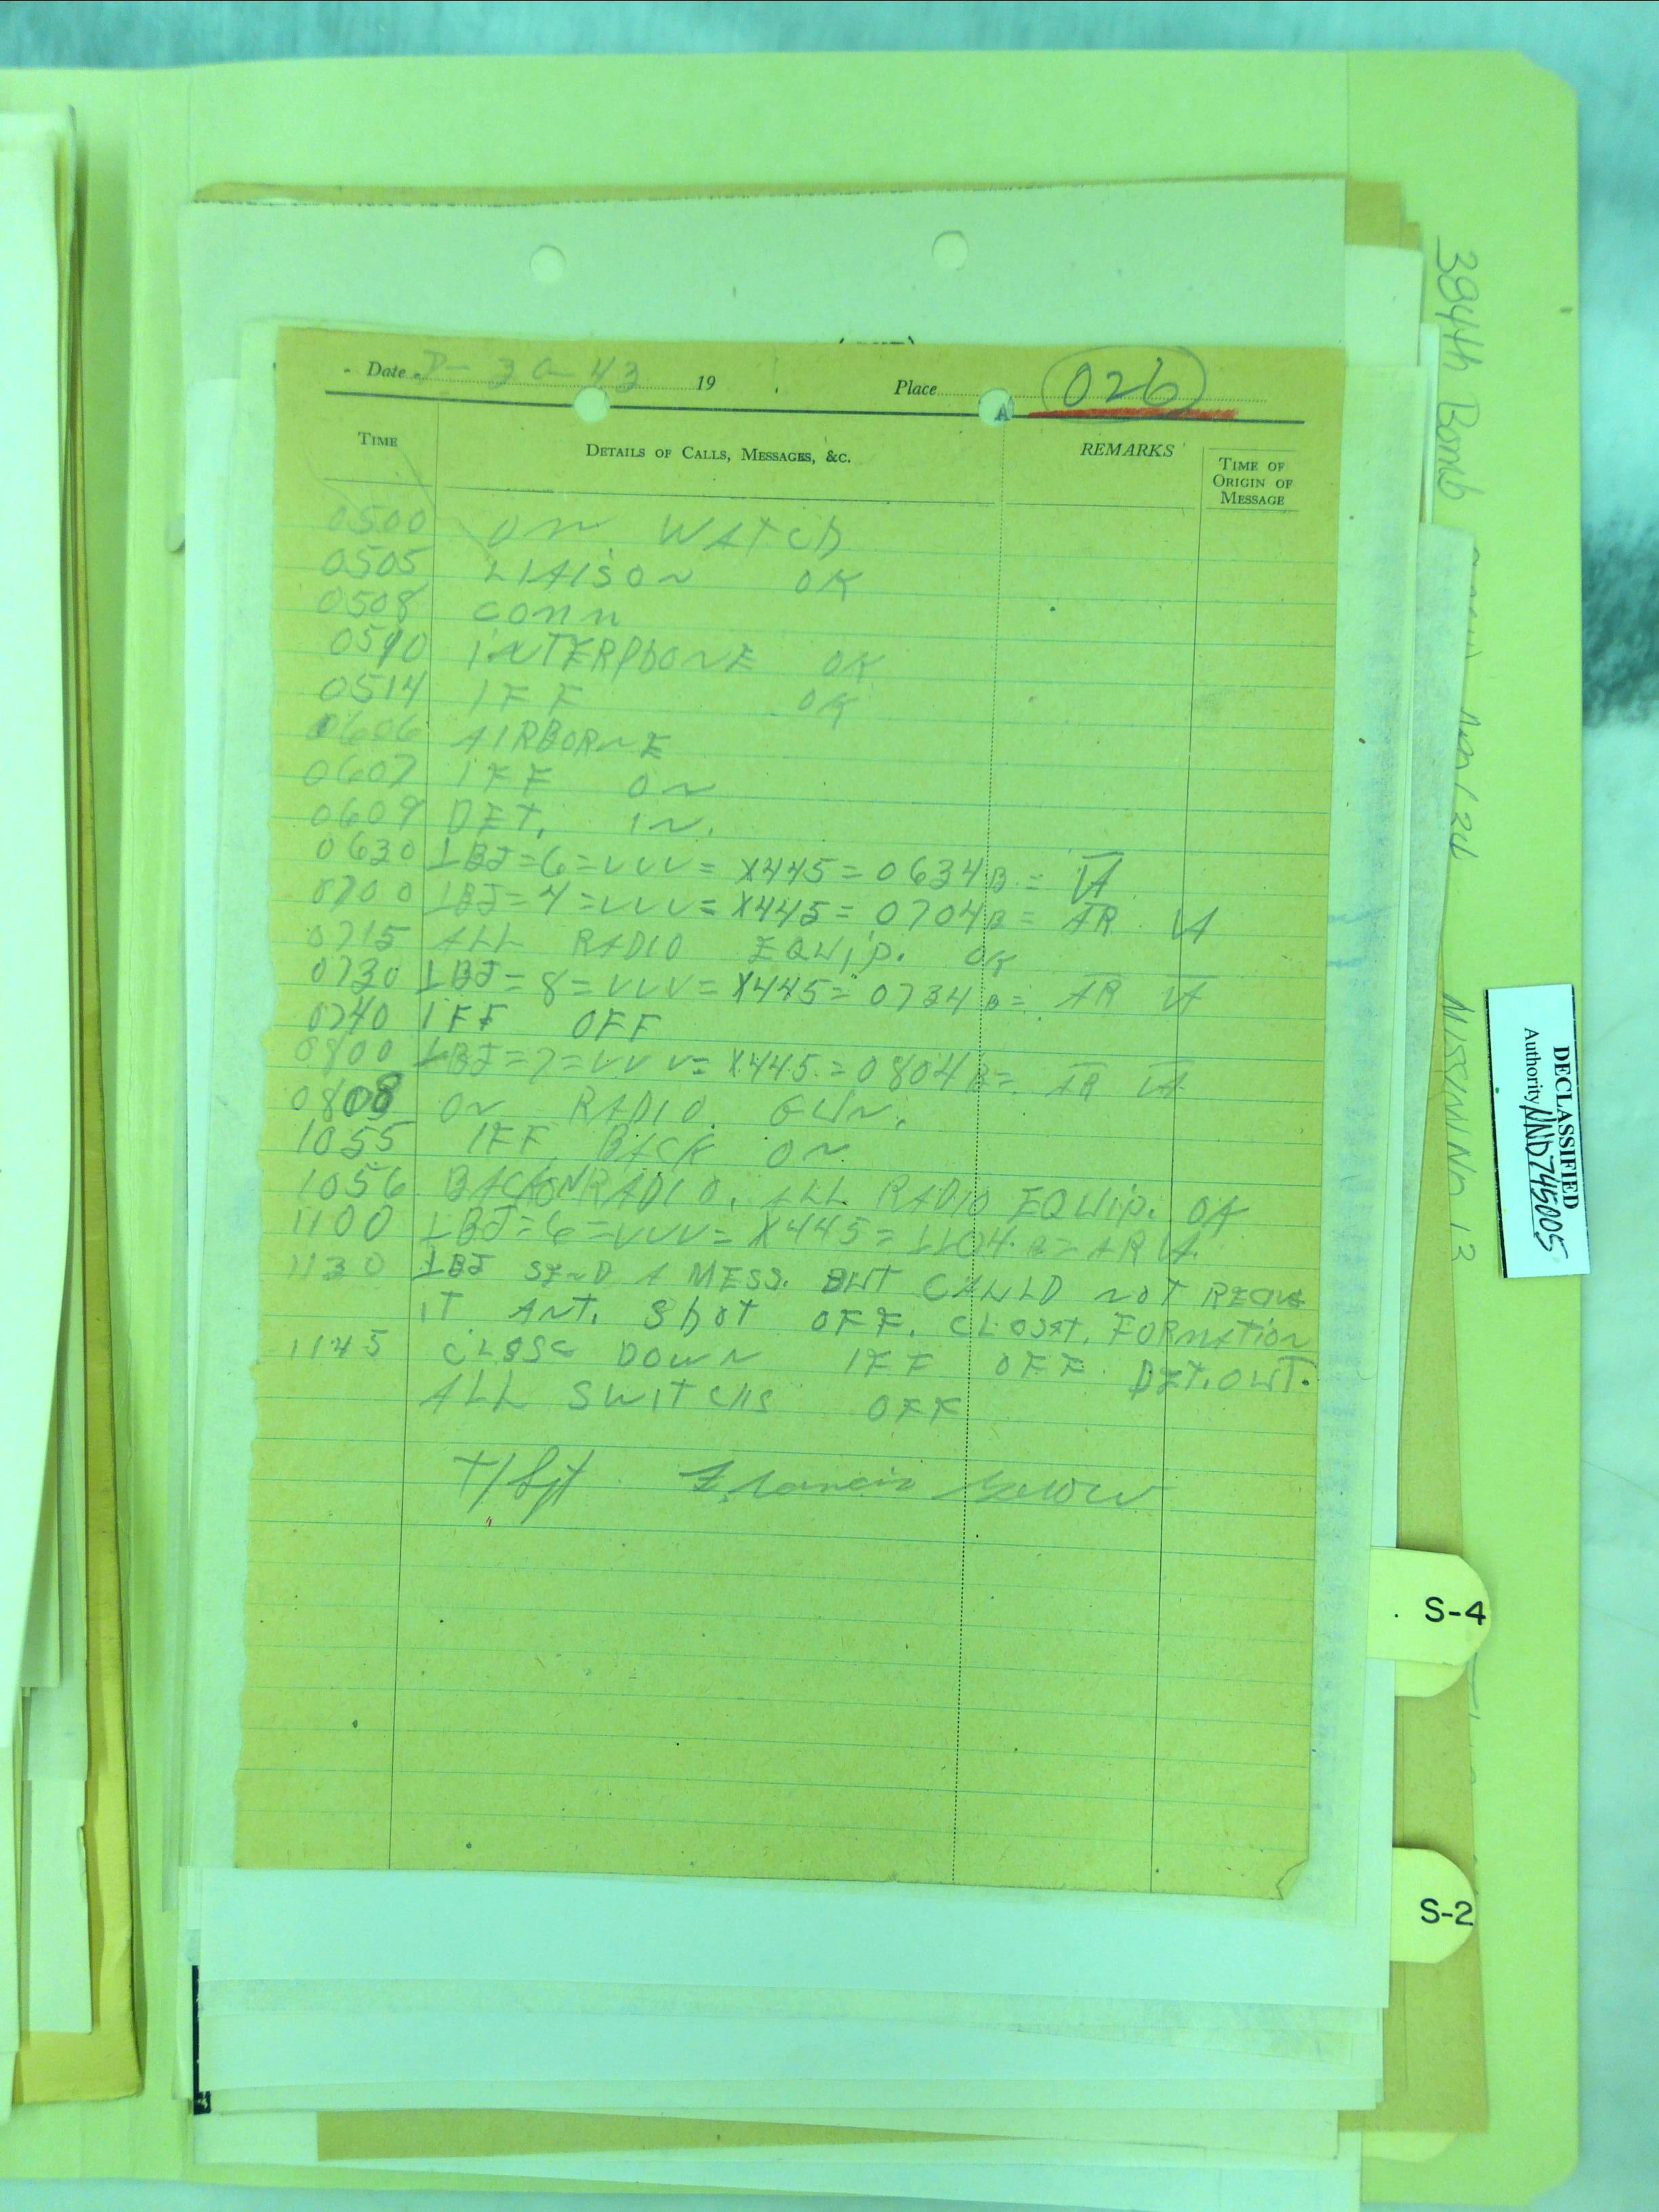 Date 30-43 19 Place 026
A
TIME DETAILS OF CALLS, MESSAGES, &C. REMARKS TIME OF ORIGIN OF MESSAGE
0500 ON WATCH
0505 LIAISON OK
0508 COMM
0510 INTERPHONE OK
0514 IFF OK
0606 AIRBORNE
0607 IFF ON
0609 DET. IN.
0630 1BJ=6=VVV= X445=0634B= VA
0700 1BJ=4=VVV= X445= 0704B= AR VA
0715 ALL RADIO EQUIP. OK
0730 1BJ=8=VVV= X445= 0734B= AR VA
0740 IFF OFF
0800 1BJ=7=VVV= X445=0804B= AR VA
0808 ON RADIO GUN.
1055 IFF BACK ON
1056 BACK ON RADIO. ALL RADIO EQUIP. OK
1100 1BJ=6=VVV= X445= 1104B= AR VA
1130 1BJ SEND A MESS. BUT COULD NOT
IT ANT. SHOT OFF. FORMATION
1145 CLOSE DOWN IFF OFF DET. OUT.
ALL SWITCHS OFF
T/Sgt Francis
384th Bomb
Mission No 13
DECLASSIFIED
Authority NND745005
S-4
S-2